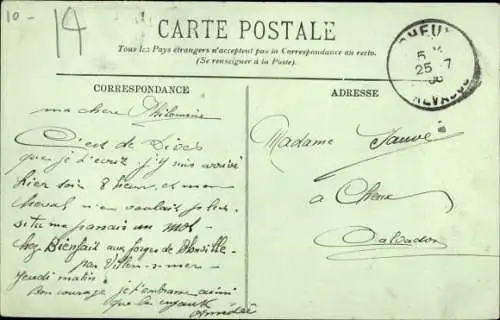 10-
14
CARTE POSTALE
Tous les Pays étrangers n'acceptent pas la Correspondance au recto.
(Se renseigner à la Poste).
CORRESPONDANCE
ADRESSE
CHEUX
25 7
CALVADOS
ma chere Philomène
C'est de Dives
que je t'ecrit. j'y suis arrivé
hier soir 8 heur. et mon
cheval n'en voulait plus.
si tu me ... un mot
chez Bienfait aux forges de Gonville
par Villers-s-mer
jeudi matin.
Bon courage je t'embrasse ainsi
que les enfants
Amédée
Madame Sauvé
à Cheux
Calvados